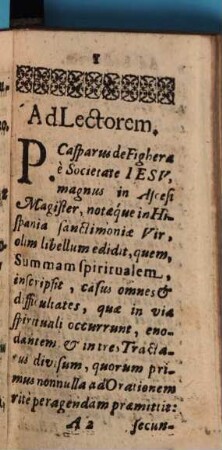 Ad Lectorem.
P. Casparus de Fighera
è Societate IESV,
magnus in Ascesi
Magister, notæque in Hi-
spania sanctimoniæ Vir,
olim libellum edidit, quem,
Summam spiritualem,
inscripsit, casus omnes &
difficultates, quæ in via
spirituali occurrunt, eno-
dantem & in tres Tracta-
us divisum, quorum pri-
mus nonnulla ad Orationem
ritè peragendam præmittit:
A 2 secun-